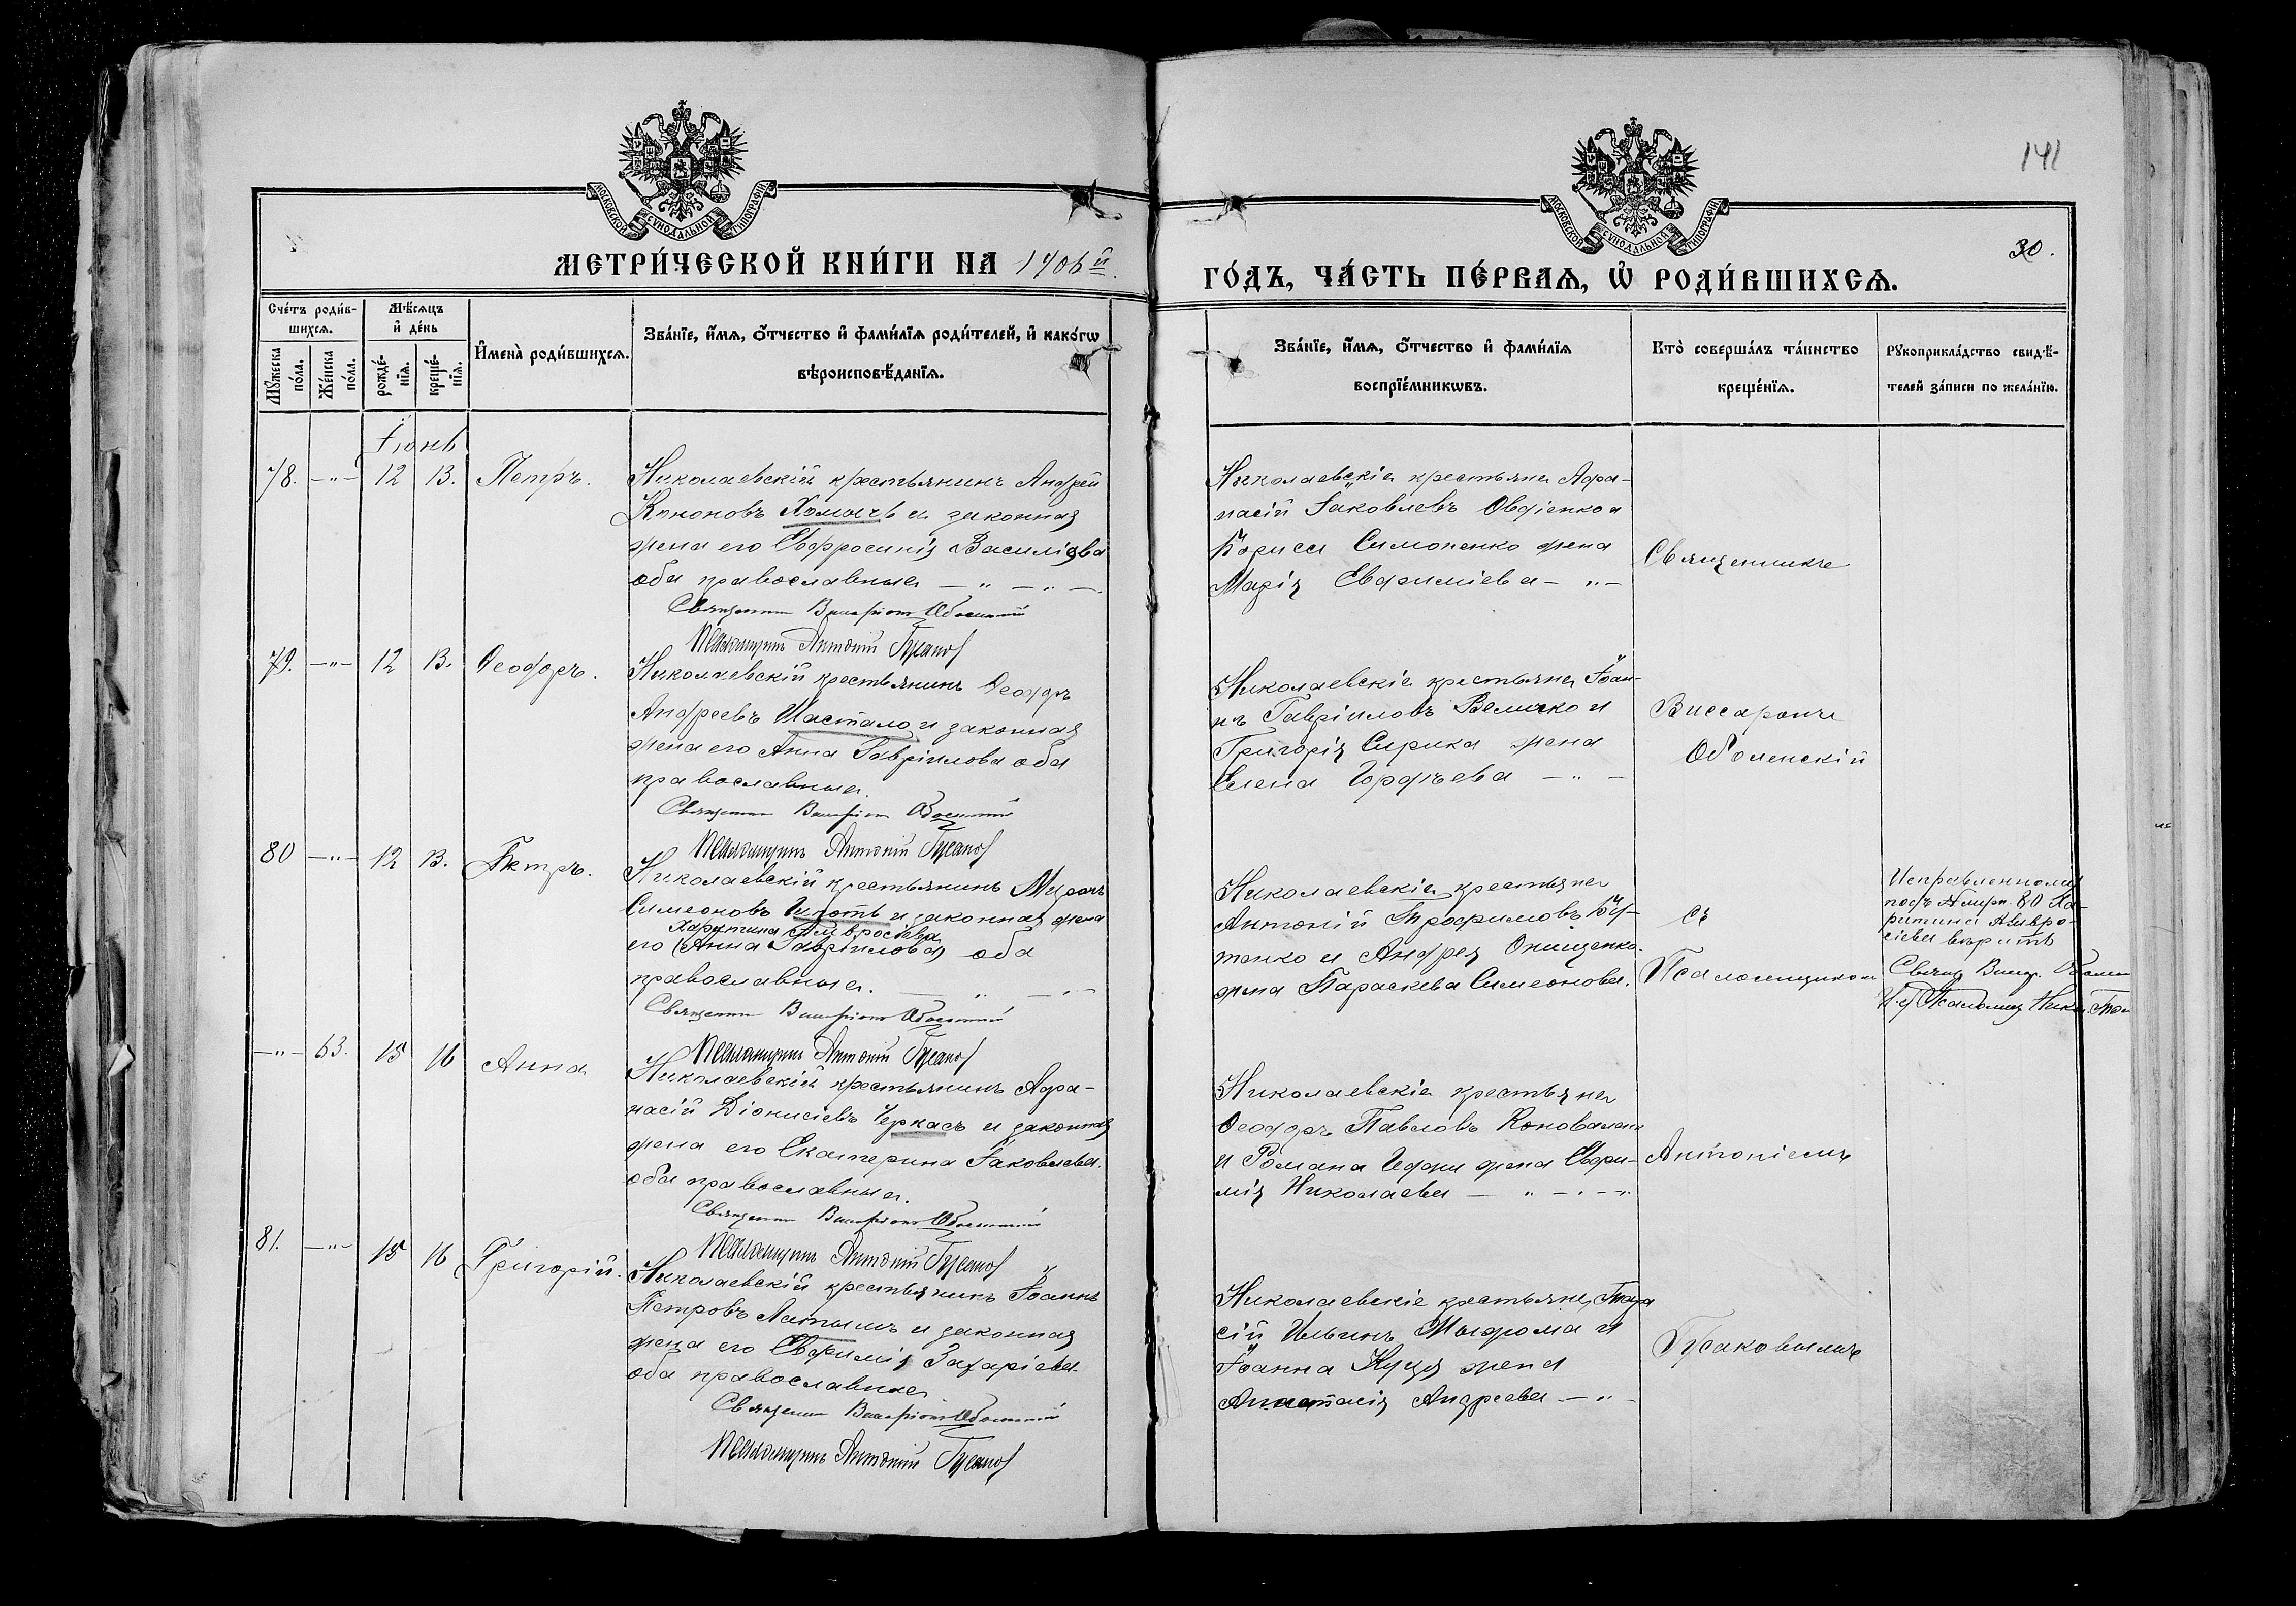 141
30.
МОСКОВСКОЙ СѴНОДАЛЬНОЙ ТИПОГРАФІИ
МОСКОВСКОЙ СѴНОДАЛЬНОЙ ТИПОГРАФІИ
МЕТРИ́ЧЕСКОЙ КНИ́ГИ НА 1906й
ГО́ДЪ, ЧА́СТЬ ПЕ́РВАѦ, Ѡ҆ РОДИ́ВШИХСѦ.
Сче́тъ роди́вшихсѧ.
Мꙋ́жеска по́ла.
Же́нска по́ла.
Мѣ́сѧцъ и҆ де́нь
рожде́нїѧ.
креще́нїѧ.
И҆мена̀ роди́вшихсѧ.
Зва́нїе, и҆́мѧ, ѻ҆́тчество и҆ фами́лїѧ роди́телей, и҆ како́гѡ
вѣроисповѣ́данїѧ.
Зва́нїе, и҆́мѧ, ѻ҆́тчество и҆ фами́лїѧ
воспрїе́мникѡвъ.
Кто̀ соверша́лъ та́инство
креще́нїѧ.
Рꙋкоприкла́дство свидѣ́-
телей за́писи по жела́нїю.
Іюнь
78. —"— 12 13. Петръ.
Николаевскій крестьянинъ Андрей
Кононовъ Хомычъ и законная
жена его Евфросинія Василіева
оба православные — " — " —.
Священникъ Виссаріонъ Оболенскій
Псаломщикъ Антоній Гусаковъ
Николаевскіе крестьяне Афа-
насій Іаковлевъ Овдіенко и
Бориса Симоненко жена
Марія Евфиміева — " —
Священникъ
79. —"— 12 13. Ѳеодоръ.
Николаевскій крестьянинъ Ѳеодоръ
Андреевъ Шастало и законная
жена его Анна Гавріилова оба
православные.
Священникъ Виссаріонъ Оболенскій
Псаломщикъ Антоній Гусаковъ
Николаевскіе крестьяне Іоан-
нъ Гавріиловъ Величко и
Григорія Сирика жена
Елена Гордѣева — " —
Виссаріонъ
Оболенскій
80 —"— 12 13. Петръ.
Николаевскій крестьянинъ Миронъ
Симеоновъ и законная жена
Харитина Амвросіева
его (Анна Гавріилова) оба
православные. — " — " —
Священникъ Виссаріонъ Оболенскій
Псаломщикъ Антоній Гусаковъ
Николаевскіе крестьяне
Антоній Трофимовъ Бу-
тенко и Андрея Онищенко
жена Параскева Симеонова.
съ
Псаломщикомъ
Исправленному
подъ №мъ 80 Ха-
ритина Амвро-
сіева вѣрить
Свящ. Висс. Оболен
И. д. Псаломщ. Никол.
—"— 63. 15 16 Анна
Николаевскій крестьянинъ Афа-
насій Діонисіевъ Черкасъ и законная
жена его Екатерина Іаковлева
оба православные.
Священникъ Виссаріонъ Оболенскій
Псаломщикъ Антоній Гусаковъ
Николаевскіе крестьяне
Ѳеодоръ Павловъ Коновалъ
и Романа жена Евфи-
мія Николаева — " — " —
Антоніемъ
81. —"— 15 16 Григорій.
Николаевскій крестьянинъ Іоаннъ
Петровъ Латышъ и законная
жена его Евфимія Захаріева
оба православные
Священникъ Виссаріонъ Оболенскій
Псаломщикъ Антоній Гусаковъ
Николаевскіе крестьяне, Тара
сій Ильинъ и
Іоанна Куца жена
Анастасія Андреева — " —
Гусаковымъ